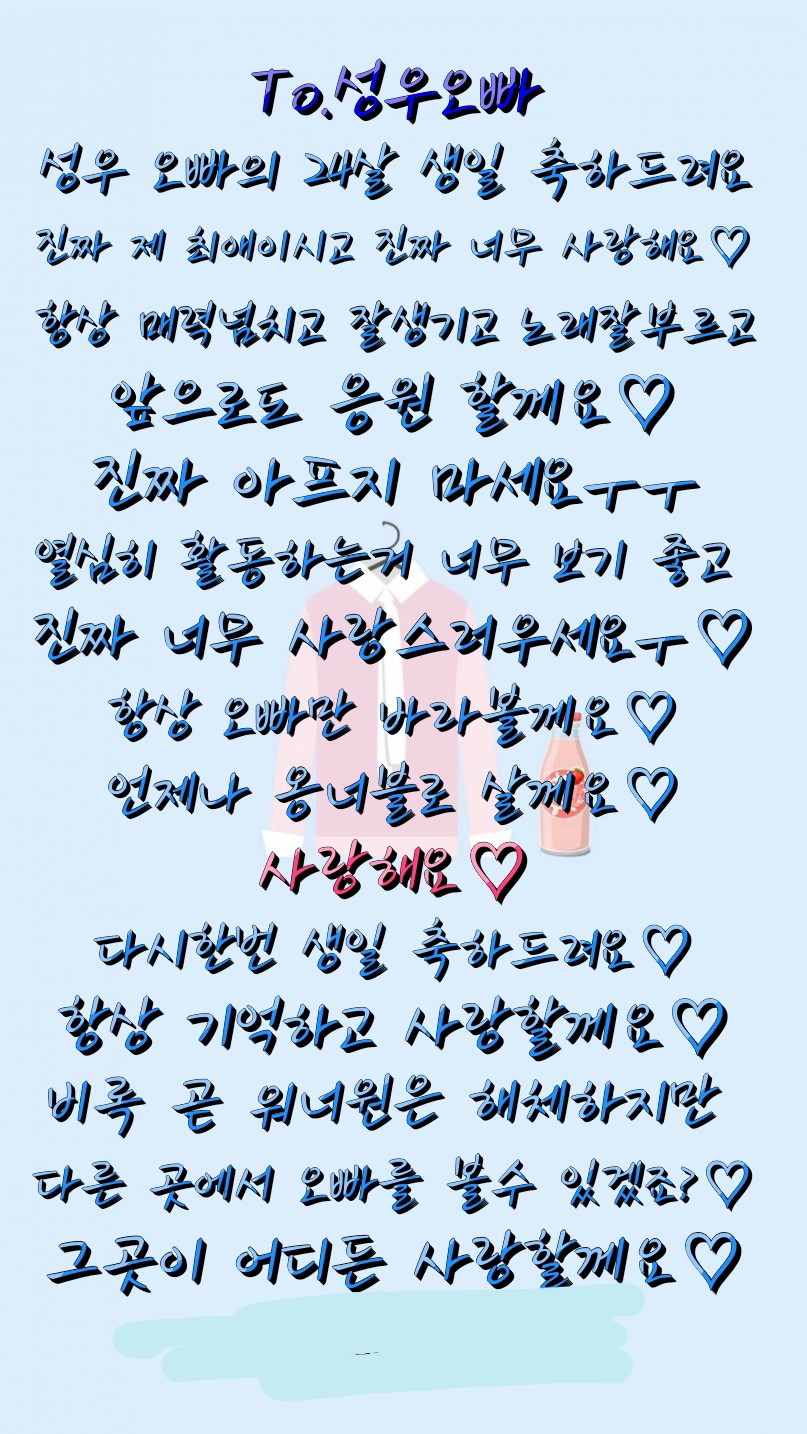 To.성우오빠
성우 오빠의 24살 생일 축하드려요
진짜 제 최애이시고 진짜 너무 사랑해요♡
항상 매력넘치고 잘생기고 노래잘부르고
앞으로도 응원 할께요♡
진짜 아프지 마세요ㅜㅜ
열심히 활동하는거 너무 보기 좋고
진짜 너무 사랑스러우세요ㅜ♡
항상 오빠만 바라볼께요♡
언제나 옹너블로 살께요♡
사랑해요♡
다시한번 생일 축하드려요♡
항상 기억하고 사랑할께요♡
비록 곧 워너원은 해체하지만
다른 곳에서 오빠를 볼수 있겠죠?♡
그곳이 어디든 사랑할께요♡